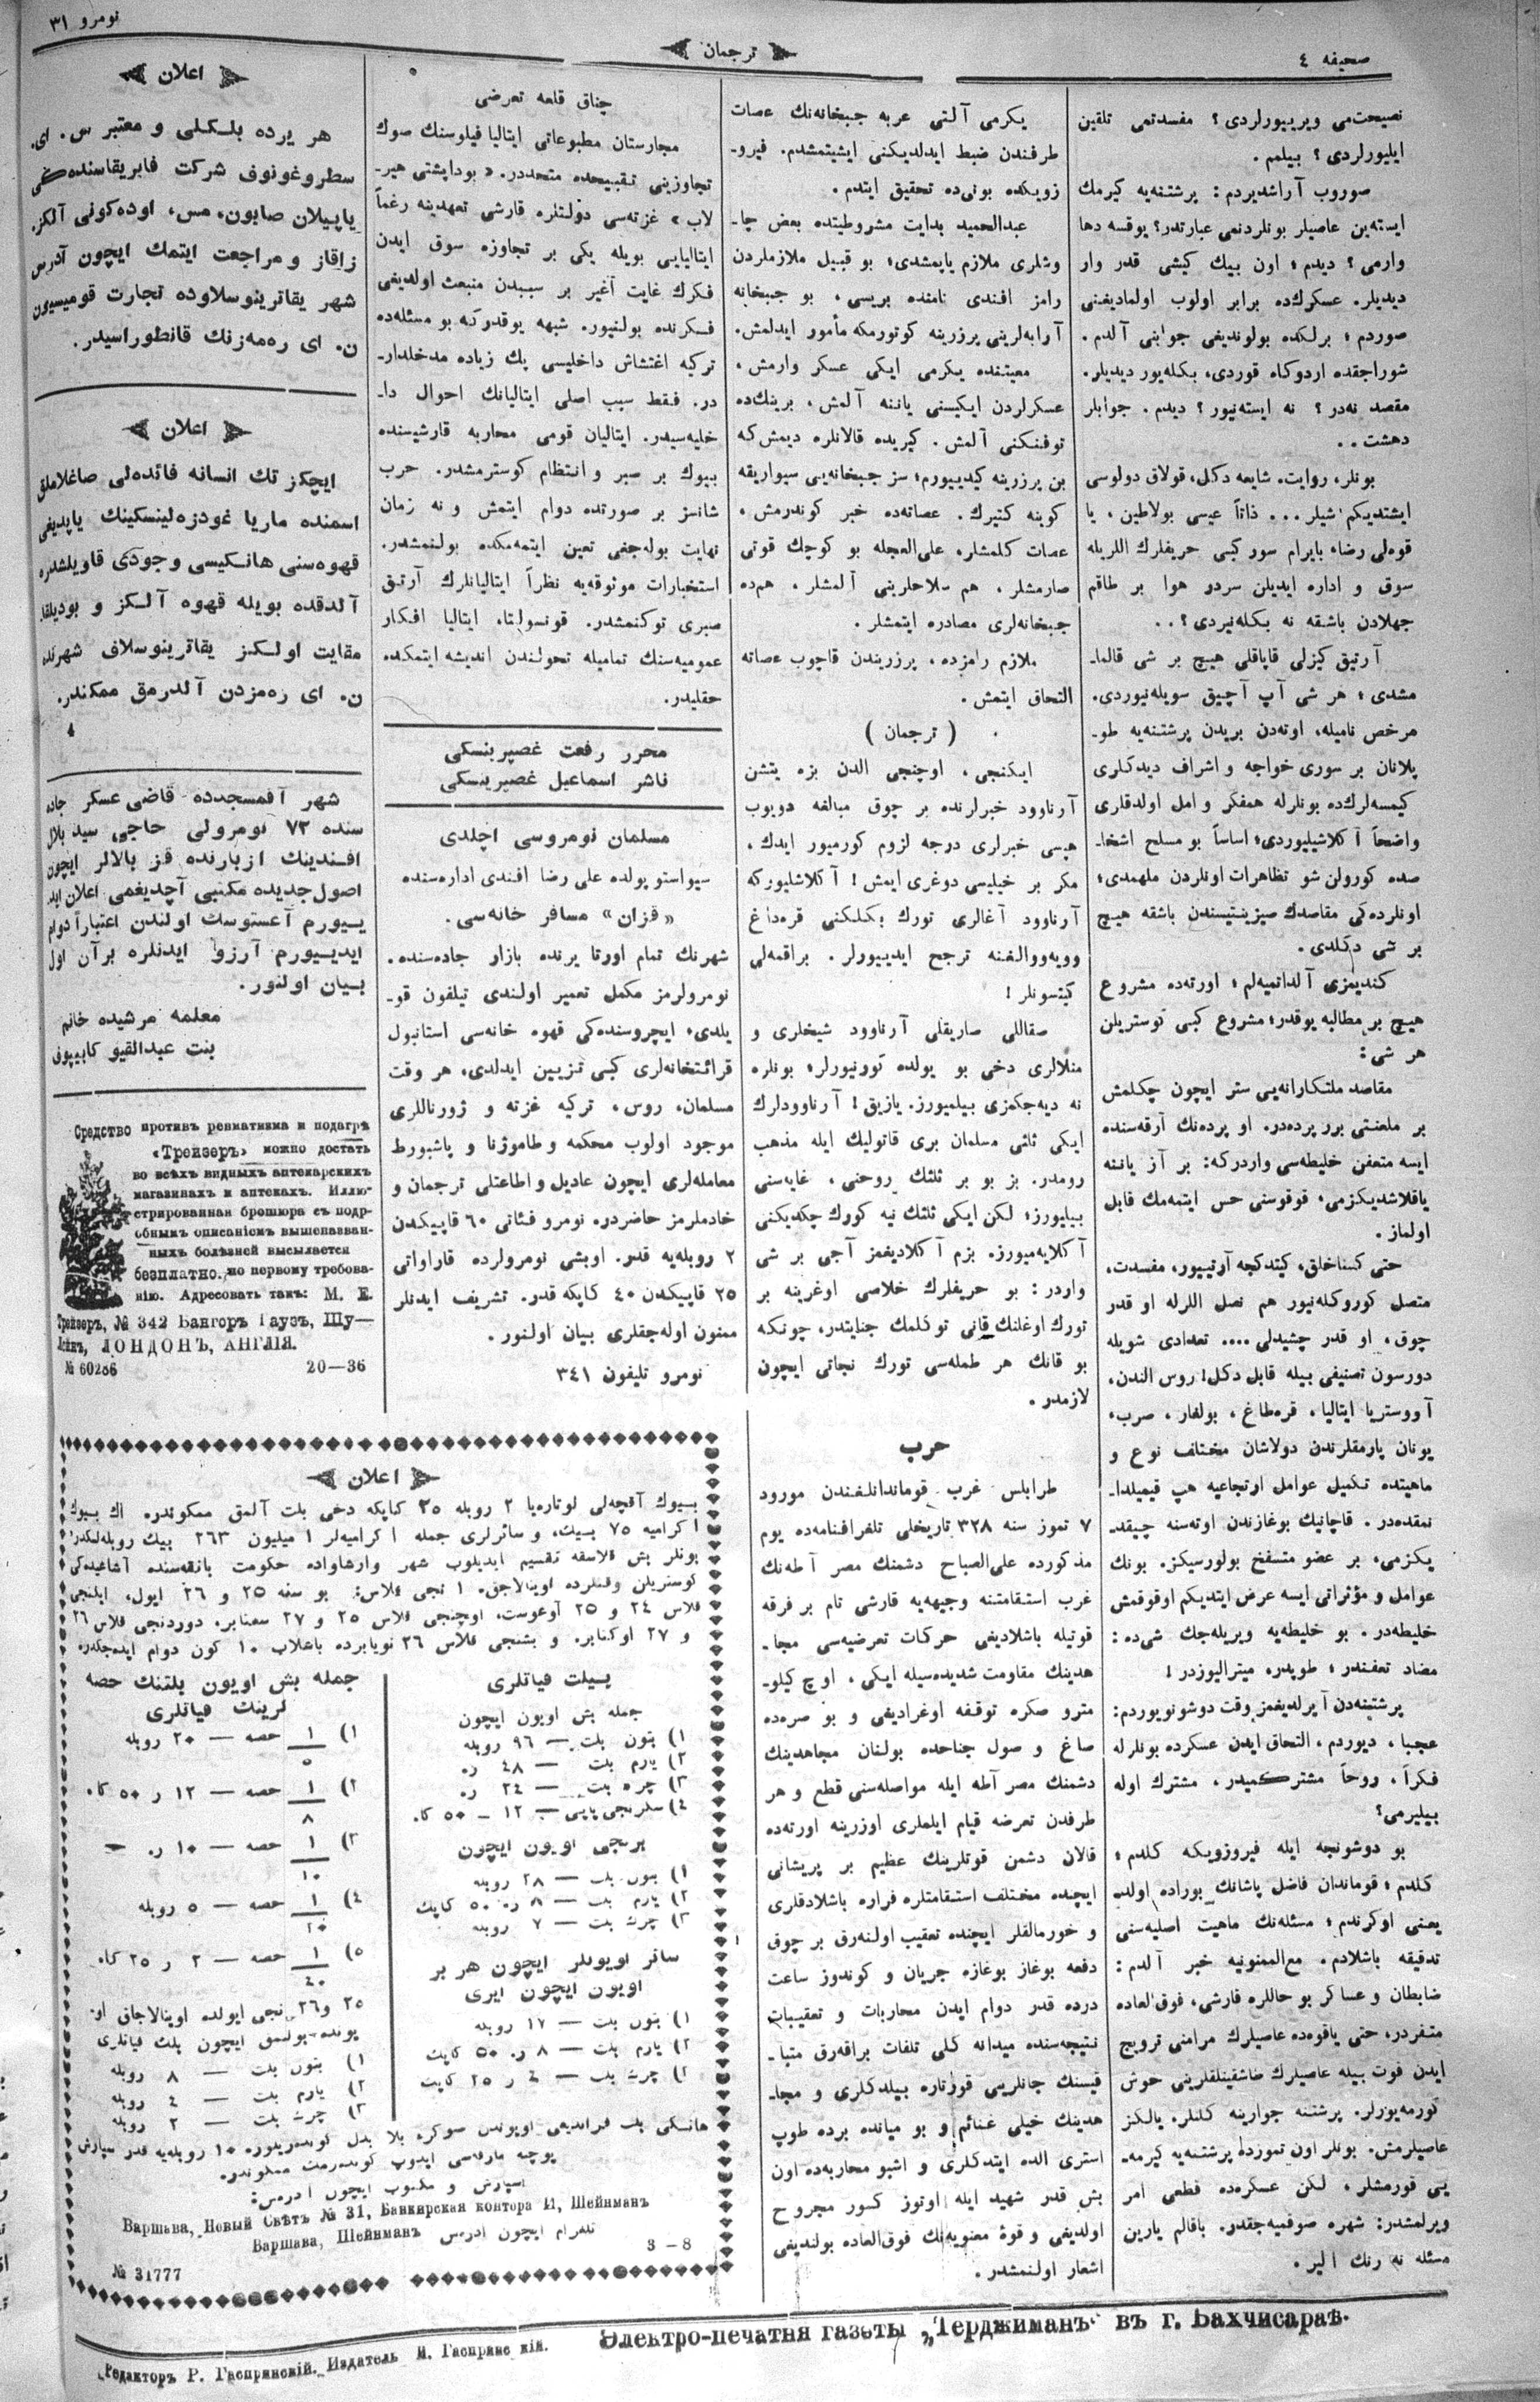 صحیفه ٤
ترجمان
نومرو ٣١
نصیحت‌می ویرییورلردی؟ مفسدتمی تلقین
ایلیورلردی؟ بیلمم.
صوروب آراشدیردم: پرشتنه‌یه کیرمك
ایسته‌ین عاصیلر بونلردنمی عبارتدر؟ یوقسه دها
وارمی؟ دیدم؛ اون بیك کیشی قدر وار
دیدیلر. عسکرك‌ده برابر اولوب اولمادیغنی
صوردم؛ برلکده بولوندیغی جوابنی آلدم.
شوراجقده اردوکاه قوردی، بکله‌یور دیدیلر.
مقصد نه‌در؟ نه ایسته‌نیور؟ دیدم. جوابلر
دهشت..
بونلر، روایت. شایعه دکل، قولاق دولوسی
ایشتدیکم شیلر... ذاتاً عیسی بولاطین، یا
قوه‌لی رضا، بایرام سور کبی حریفلرك اللریله
سوق و اداره ایدیلن سردو هوا بر طاقم
جهلادن باشقه نه بکله‌نیردی؟..
آرتیق کیزلی قاپاقلی هیچ بر شی قالما-
مشدی؛ هر شی آپ آچیق سویله‌نیوردی.
مرخص نامیله، اوته‌دن بریدن پرشتنه‌یه طو-
پلانان بر سوری خواجه و اشراف دیدکلری
کیمسه‌لرك‌ده بونلرله همفکر و امل اولدقلری
واضحاً آکلاشیلیوردی؛ اساساً بو مسلح اشخا-
صده کورولن شو تظاهرات اونلردن ملهمدی؛
اونلرده‌کی مقاصدك صیزینتیسندن باشقه هیچ
بر شی دکلدی.
کندیمزی آلداتمیه‌لم؛ اورته‌ده مشروع
هیچ بر مطالبه یوقدر؛ مشروع کبی کوستریلن
هر شی:
مقاصد ملتکارانه‌یی ستر ایچون چکلمش
بر ملعنتی برر پرده‌در. او پرده‌نك آرقه‌سنده
ایسه متعفن خلیطه‌سی واردرکه: بر آز یاننه
یاقلاشدیکزمی؛ قوقوسنی حس ایتمه‌مك قابل
اولماز.
حتی کستاخلق، کیتدکجه آرتییور، مفسدت،
متصل کوروکله‌نیور هم نصل اللرله او قدر
چوق، او قدر چشیدلی .... تعدادی شویله
دورسون تصنیفی بیله قابل دکل! روس الندن،
آووستریا ایتالیا، قره‌طاغ، بولغار، صرب،
یونان پارمقلرندن دولاشان مختلف نوع و
ماهیتده تکمیل عوامل ارتجاعیه هپ قیمیلدا-
نمقده‌در. قاچانیك بوغازندن اوته‌سنه چیقد-
یکزمی، بر عضو متسفخ بولورسیکز. بونك
عوامل و مؤثراتی ایسه عرض ایتدیکم اوقوقمش
خلیطه‌در. بو خلیطه‌یه ویریله‌جك شی‌ده:
مضاد تعفندر؛ طوپدر، میترالیوزدر!
پرشتنه‌دن آیرلدیغمز وقت دوشونویوردم:
عجبا، دیوردم، التحاق ایدن عسکرده بونلرله
فکراً، روحاً مشترکمیدر، مشترك اوله
بیلیرمی؟
بو دوشونجه ایله فیروزویکه کلدم؛
کلدم؛ قوماندان فاضل پاشانك بوراده اولدـ
یغنی اوکرندم؛ مسئله‌نك ماهیت اصلیه‌سنی
تدقیقه باشلادم. مع‌الممنونیه خبر آلدم:
ضابطان و عساکر بو حاللره قارشی، فوق العاده
متنفردر، حتی یاقوه‌ده عاصیلرك مرامنی ترویج
ایدن فوت بیله عاصیلرك طاشقینلقلرینی خوش
کورمه‌یورلر. پرشتنه جوارینه کلنلر. یالکز
عاصیلرمش. بونلر اون تموزده پرشتنه‌یه کیرمه-
یی قورمشلر، لکن عسکره‌ده قطعی امر
ویرلمشدر: شهره صوقمیه‌جقدر. باقالم یارین
مسئله نه رنك الیر.
یکرمی آلتی عربه جبخانه‌نك عصات
طرفندن ضبط ایدلدیکنی ایشیتمشدم. فیرو-
زویکده بونی‌ده تحقیق ایتدم.
عبدالحمید بدایت مشروطیتده بعض چا-
وشلری ملازم یاپمشدی؛ بو قبیل ملازملردن
رامز افندی نامنده بریسی، بو جبخانه
آرابه‌لرینی پرزرینه کوتورمکه مأمور ایدلمش.
معیتنده یکرمی ایکی عسکر وارمش،
عسکرلردن ایکیسنی یاننه آلمش، برینك‌ده
توفنکنی آلمش. کیریده قالانلره دیمش‌که
بن پرزرینه کیدییورم؛ سز جبخانه‌یی سیواریقه
کوینه کتیرك. عصاته‌ده خبر کوندرمش،
عصات کلمشلر، علی‌العجله بو کوچك قوتی
صارمشلر، هم سلاحلرینی آلمشلر، هم‌ده
جبخانه‌لری مصادره ایتمشلر.
ملازم رامزده، پرزریندن قاچوب عصاته
التحاق ایتمش.
(ترجمان)
ایکنجی، اوچنجی الدن بزه یتشن
آرناوود خبرلرنده بر چوق مبالغه دویوب
هپسی خبرلری درجه لزوم کورمیور ایدك،
مکر بر خیلیسی دوغری ایمش! آکلاشلیورکه
آرناوود آغالری تورك بکلکنی قره‌داغ
وویه‌ووالغنه ترجح ایدییورلر. براقمه‌لی
کیتسونلر!
صقاللی صاریقلی آرناوود شیخلری و
منلالری دخی بو یولده کورنیورلر؛ بونلره
نه دیه‌جکمزی بیلمیورز. یازیق! آرناوودلرك
ایکی ثلثی مسلمان بری قاتولیك ایله مذهب
رومدر. بز بو بر ثلثك روحنی، غایه‌سنی
بیلیورز؛ لکن ایکی ثلثك نیه کورك چکدیکنی
آکلایه‌میورز. بزم آکلادیغمز آجی بر شی
واردر: بو حریفلرك خلاصی اوغرینه بر
تورك اوغلنك قانی توکلمك جنایتدر، چونکه
بو قانك هر طمله‌سی تورك نجاتی ایچون
لازمدر.
حرب
طرابلس غرب قوماندانلغندن مورود
٧ تموز سنه ٣٢٨ تاریخلی تلغرافنامه‌ده یوم
مذکورده علی‌الصباح دشمنك مصر آطه‌نك
غرب استقامتنه وجیهه‌یه قارشی تام بر فرقه
قوتیله باشلادیغی حرکات تعرضیه‌سی مجا-
هدینك مقاومت شدیده‌سیله ایکی، اوچ کیلو-
مترو صکره توقفه اوغرادیغی و بو صره‌ده
صاغ و صول جناحده بولنان مجاهدینك
دشمنك مصر آطه ایله مواصله‌سنی قطع و هر
طرفدن تعرضه قیام ایلملری اوزرینه اورته‌ده
قالان دشمن قوتلرینك عظیم بر پریشانی
ایچنده مختلف استقامتلره فراره باشلادقلری
و خورمالقلر ایچنده تعقیب اولنه‌رق بر چوق
دفعه بوغاز بوغازه جریان و کوندوز ساعت
درده قدر دوام ایدن محاربات و تعقیبات
نتیجه‌سنده میدانه کلی تلفات براقه‌رق متبا-
قیسنك جانلریسی قورتاره بیلدکلری و مجا-
هدینك خیلی غنائم و بو میانده برده طوپ
استری الده ایتدکلری و اشبو محاربه‌ده اون
بش قدر شهید ایله اوتوز کسور مجروح
اولدیغی و قوۀ معنویه‌نك فوق‌العاده بولندیغی
اشعار اولنمشدر.
چناق قلعه تعرضی
مجارستان مطبوعاتی ایتالیا فیلوسنك صوك
تجاوزینی تقبیحده متحددر. «بوداپشتی هیر-
لاب» غزته‌سی دولتلره قارشی تعهدینه رغماً
ایتالیایی بویله یکی بر تجاوزه سوق ایدن
فکرك غایت آغیر بر سببدن منبعث اولدیغی
فکرنده بولنیور. شبهه یوقدرکه بو مسئله‌ده
ترکیه اغتشاش داخلیسی پك زیاده مدخلدار-
در. فقط سبب اصلی ایتالیانك احوال دا-
خلیه‌سیدر. ایتالیان قومی محاربه قارشیسنده
بیوك بر صبر و انتظام کوسترمشدر. حرب
شانسز بر صورتده دوام ایتمش و نه زمان
نهایت بوله‌جغی تعین ایتمه‌مکده بولنمشدر.
استخبارات موثوقه‌یه نظراً ایتالیانلرك آرتیق
صبری توکنمشدر. قونسولتا، ایتالیا افکار
عمومیه‌سنك تمامیله تحولندن اندیشه ایتمکده
حقلیدر.
محرر رفعت غصپرینسکی
ناشر اسماعیل غصپرینسکی
مسلمان نومروسی اچلدی
سیواستوپولده علی رضا افندی اداره‌سنده
«قزان» مسافر خانه‌سی.
شهرنك تمام اورتا یرنده بازار جاده‌سنده.
نومرولرمز مکمل تعمیر اولندی تیلفون قو-
یلدی؛ ایچروسنده‌کی قهوه خانه‌سی استانبول
قرائتخانه‌لری کبی تزیین ایدلدی، هر وقت
مسلمان، روس، ترکیه غزته و ژورناللری
موجود اولوب محکمه و طاموژنا و پاشپورط
معامله‌لری ایچون عادیل و اطاعتلی ترجمان و
خادملرمز حاضردر. نومرو فئاتی ٦٠ قاپیکدن
٢ روبله‌یه قدر. اوبشی نومرولرده قاراواتی
٢٥ قاپیکدن ٤٠ کاپکه قدر. تشریف ایدنلر
ممنون اوله‌جقلری بیان اولنور.
نومرو تلیفون ٣٤١
اعلان
هر یرده بلکلی و معتبر س. ای.
سطروغونوف شرکت فابریقاسنده‌کی
یاپیلان صابون، مس، اوده‌کونی آلکز.
زاقاز و مراجعت ایتمك ایچون آدرس
شهر یقاترینوسلاوده تجارت قومیسیون
ن. ای ره‌مه‌زنك قانطوراسیدر.
اعلان
ایچکز تك انسانه فائده‌لی صاغلاملق
اسمنده ماریا غودزه‌لینسکینك یاپدیغی
قهوه‌سنی هانکیسی وجودی قاویلشدره
آلدقده بویله قهوه آلکز و بودیلقا.
مقایت اولکز یقاترینوسلاف شهرنده
ن. ای ره‌مزدن آلدرمق ممکندر.
شهر آقمسجدده قاضی عسکر جاده
سنده ٧٣ نومرولی حاجی سید بلال
افندینك ازبارنده قز بالالر ایچون
اصول جدیده مکتبی آچدیغمی اعلان اید
ییورم آغستوسك اولندن اعتباراً دوام
ایدییورم آرزو ایدنلره برآن اول
بیان اولنور.
معلمه مرشیده خانم
بنت عبدالقیو کابیپوی
Средство противъ ревматизма и подагры
«Трейзеръ» можно достать
во всѣхъ видныхъ аптекарскихъ
магазинахъ и аптекахъ. Иллю-
стрированная брошюра съ подр-
обнымъ описаніемъ вышеназван-
ныхъ болѣзней высылается
безплатно. по первому требова-
нію. Адресовать такъ: М. Е.
Трейзеръ, № 342 Бангоръ Гаузъ, Шу—
Лейнъ, ЛОНДОНЪ, АНГЛІЯ.
№ 60286 20—36
اعلان
بیوك آقچه‌لی لوتاریا ٢ روبله ٢٥ کاپکه دخی بلت آلمق ممکوندر. اك بیوك
اکرامیه ٧٥ بیك، و سائرلری جمله اکرامیه‌لر ١ میلیون ٢٦٣ بیك روبله‌لکدر
بونلر بش قلاسقه تقسیم ایدیلوب شهر وارشاواده حکومت بانقه‌سنده آشاغیده‌کی
کوستریلن وقتلرده اوینالاجق. ١ نجی قلاس: بو سنه ٢٥ و ٢٦ ایول، ایکنجی
قلاس ٢٤ و ٢٥ آوغوست، اوچنجی قلاس ٢٥ و ٢٧ سعنتابر. دوردنجی قلاس ٢٦
و ٢٧ اوکتابر. و بشنجی قلاس ٢٦ نویابرده باشلاب ١٠ کون دوام ایده‌جکدره
بیلت فیاتلری
جمله بش اویون ایچون
١) بتون بلت — ٩٦ روبله
٢) یارم بلت — ٤٨ ر.
٣) چره بت — ٢٤ ر.
٤) سکزنجی پایی — ١٢ — ٥٠ کا.
برنجی اویون ایچون
١) بتون بلت — ٢٨ روبله
٢) یارم بلت — ٨ ر. ٥٠ کاپك
٣) چرك بلت — ٧ روبله
سائر اویونلر ایچون هر بر
اویون ایچون ایری
١) بتون بلت — ١٧ روبله
٢) یارم بلت — ٨ ر. ٥٠ کاپك
٣) چرك بلت — ٤ ر ٢٥ کاپك
جمله بش اویون بلتنك حصه
لرینك فیاتلری
١) ١/٥ حصه — ٢٠ روبله
٢) ١/٨ حصه — ١٢ ر ٥٠ کا.
٣) ١/١٠ حصه — ١٠ ر. —
٤) ١/٢٠ حصه — ٥ روبله
٥) ١/٤٠ حصه — ٢ ر ٢٥ کا.
٢٥ و٢٦ نجی ایولده اوینالاجاق او-
یونده بولنمق ایچون بلت فیاتلری
١) بتون بلت — ٨ روبله
٢) یارم بلت — ٤ روبله
٣) چرك بلت — ٢ روبله
اسپارش و مکتوب ایچون ادرس:
Варшава, Новый Свѣтъ № 31, Банкирская контора И, Шейнманъ
تلغرام ایچون ادرس Варшава, Шейнманъ
3 — 8
№ 31777
Редакторъ Р. Гаспринскій. Издатель И. Гаспринскій.
Электро-печатня газеты „Терджиманъ“ въ г. Бахчисараѣ.